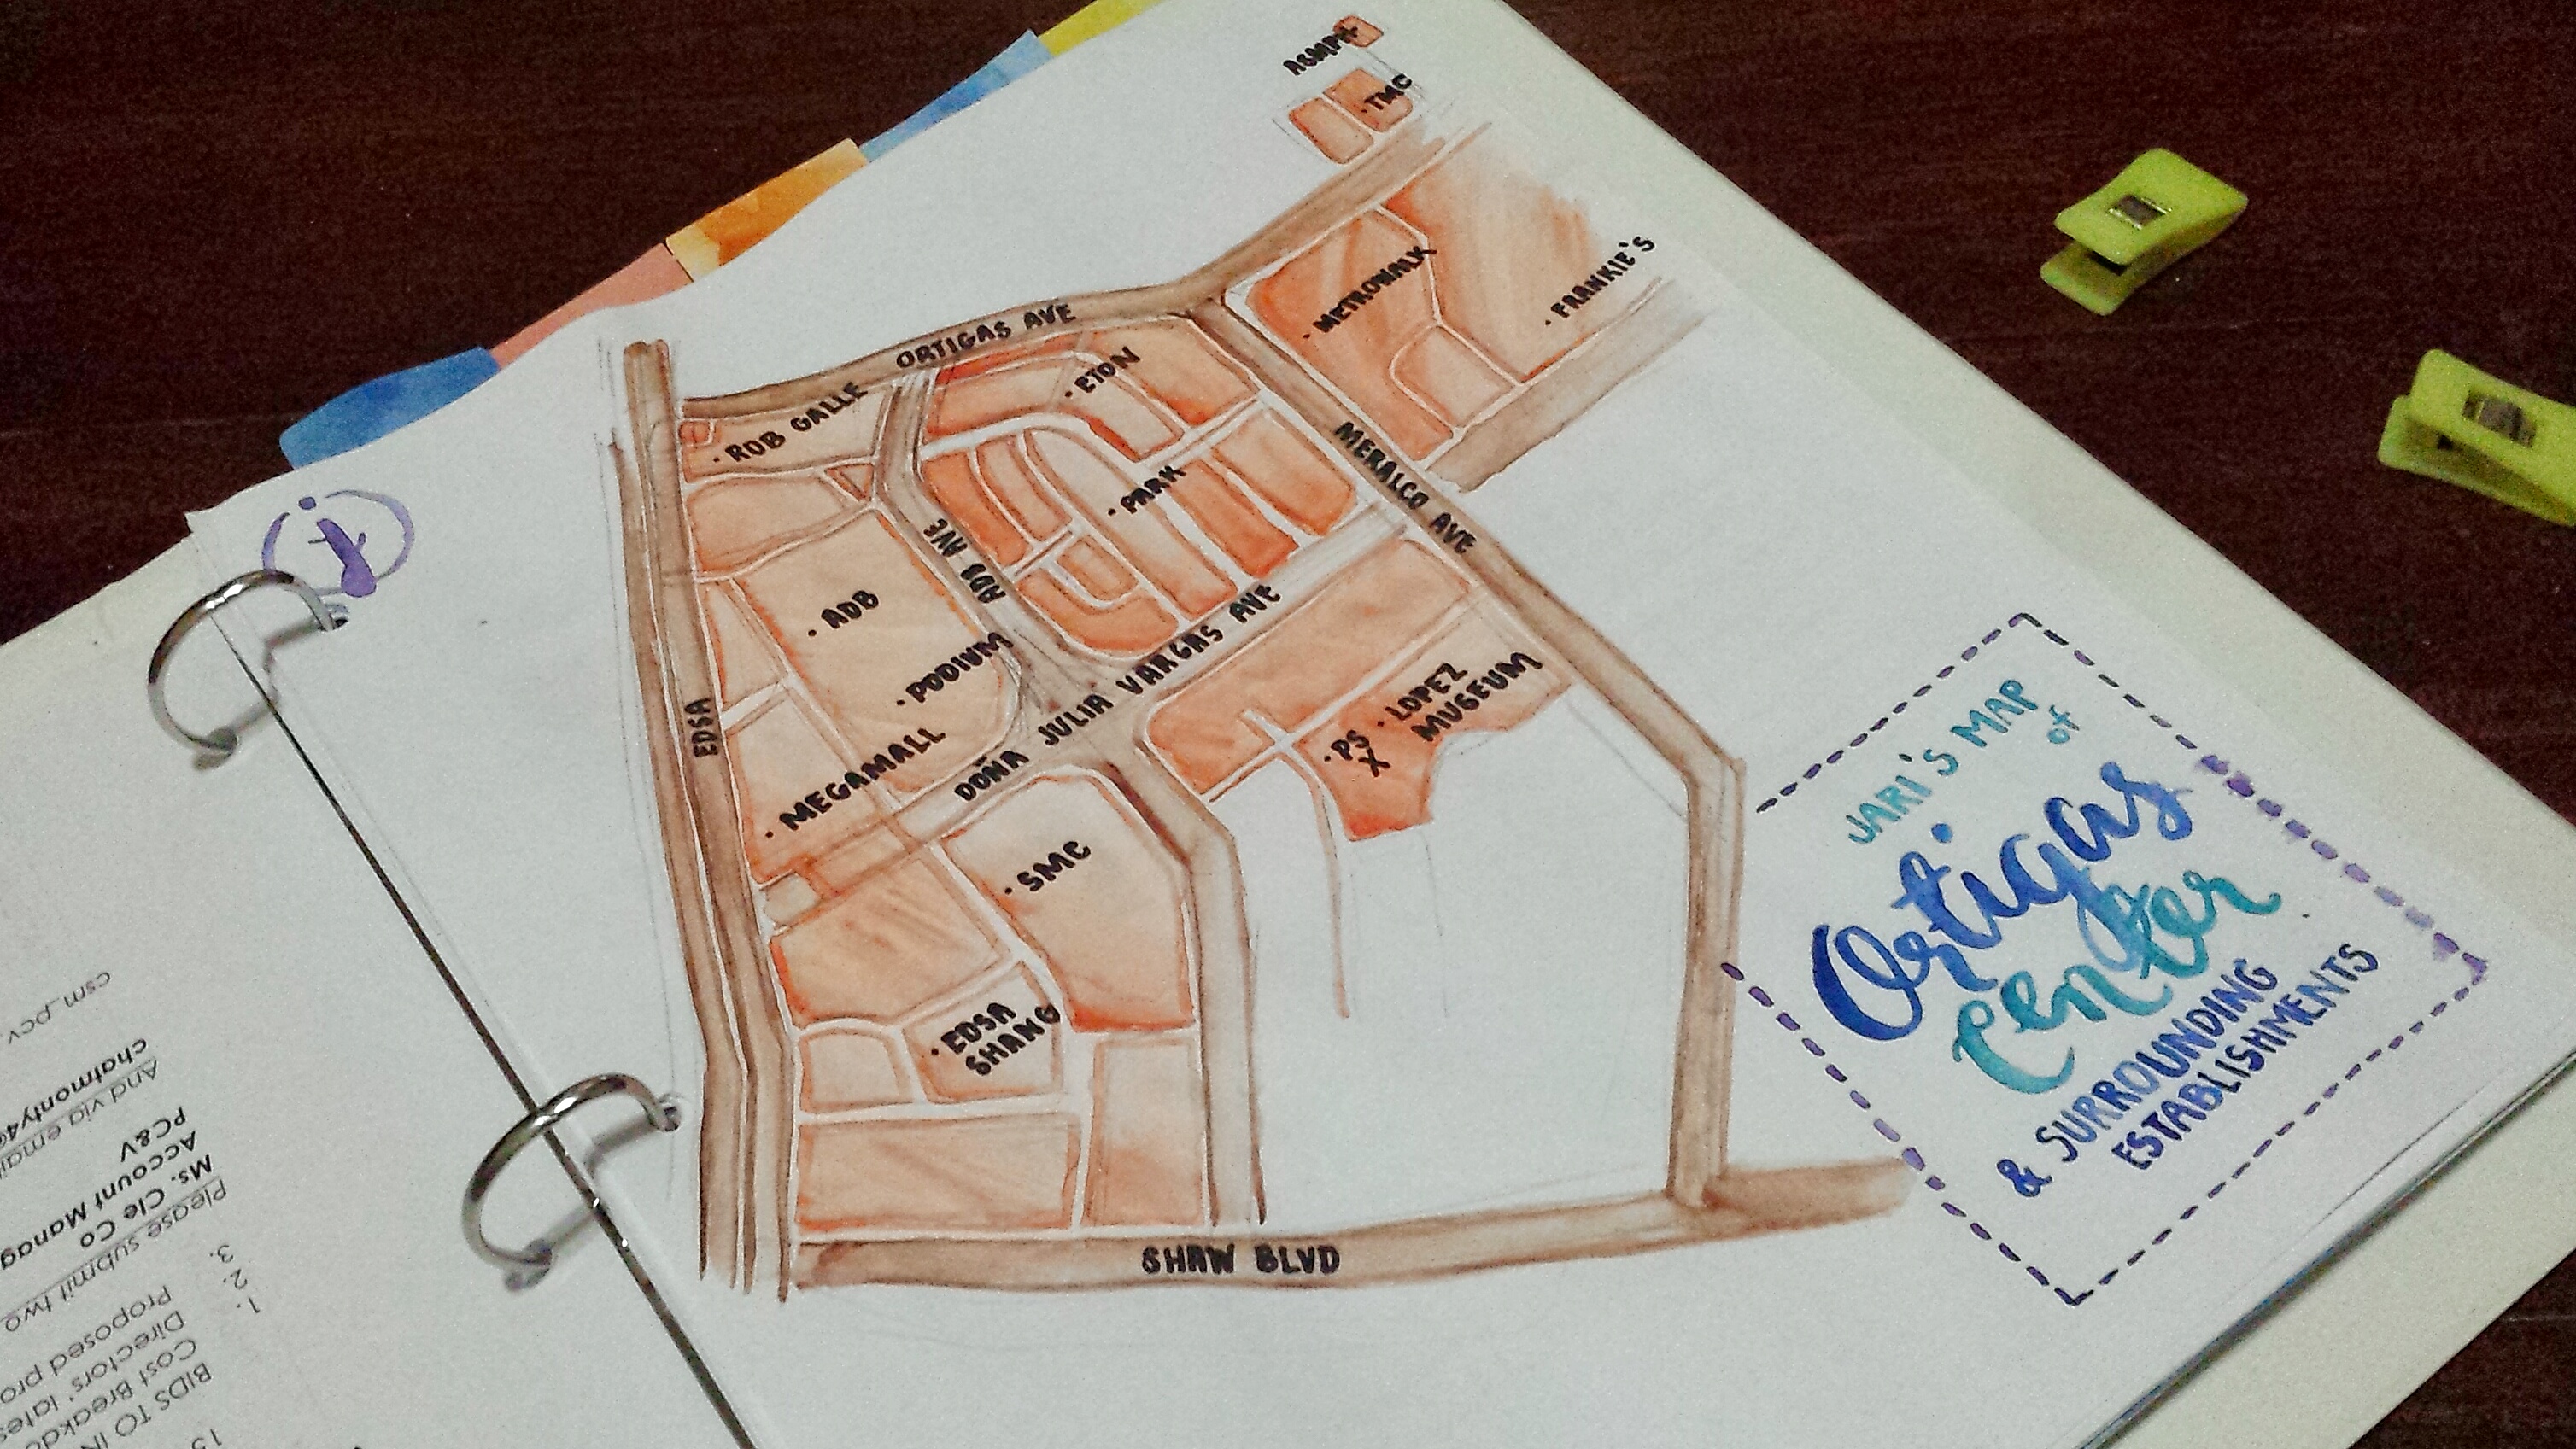 ASMPH
TMC
METROWALK
FRANKIE'S
ORTIGAS AVE
ETON
ROB GALLE
MERALCO AVE
PARK
ADB AVE
ADB
PODIUM
DOÑA JULIA VARGAS AVE
LOPEZ
MUSEUM
PS
X
EDSA
MEGAMALL
SMC
EDSA
SHANG
SHAW BLVD
j
JARI'S MAP
of
Ortigas
Center
& SURROUNDING
ESTABLISHMENTS
15
BIDS TO
Cost Breakdo
Directors' lates
Proposed pro
1.
2.
3.
Please submit two
Ms. Cle Co
Account Manag
PC&V
And via email
chatmonty4
csm_pcv